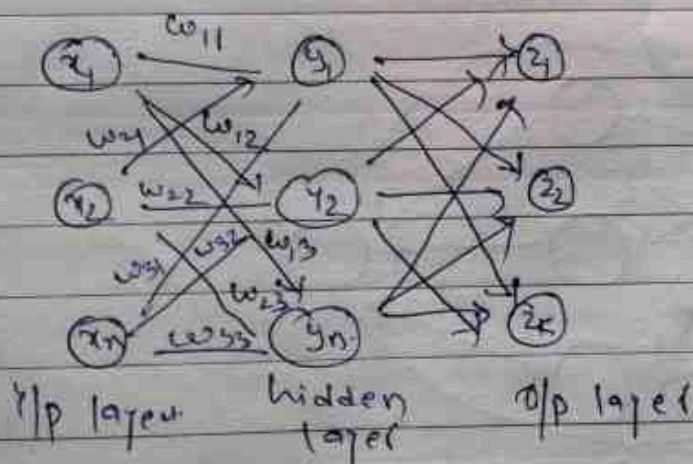 w11
x1 y1 z1
w21 w12
x2 w22 y2 z2
w31 w32 w13
w23
xn w33 yn zk
I/p layer hidden layer O/p layer